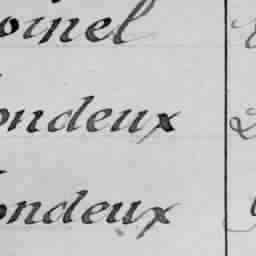 oinel
ondeux
ondeux